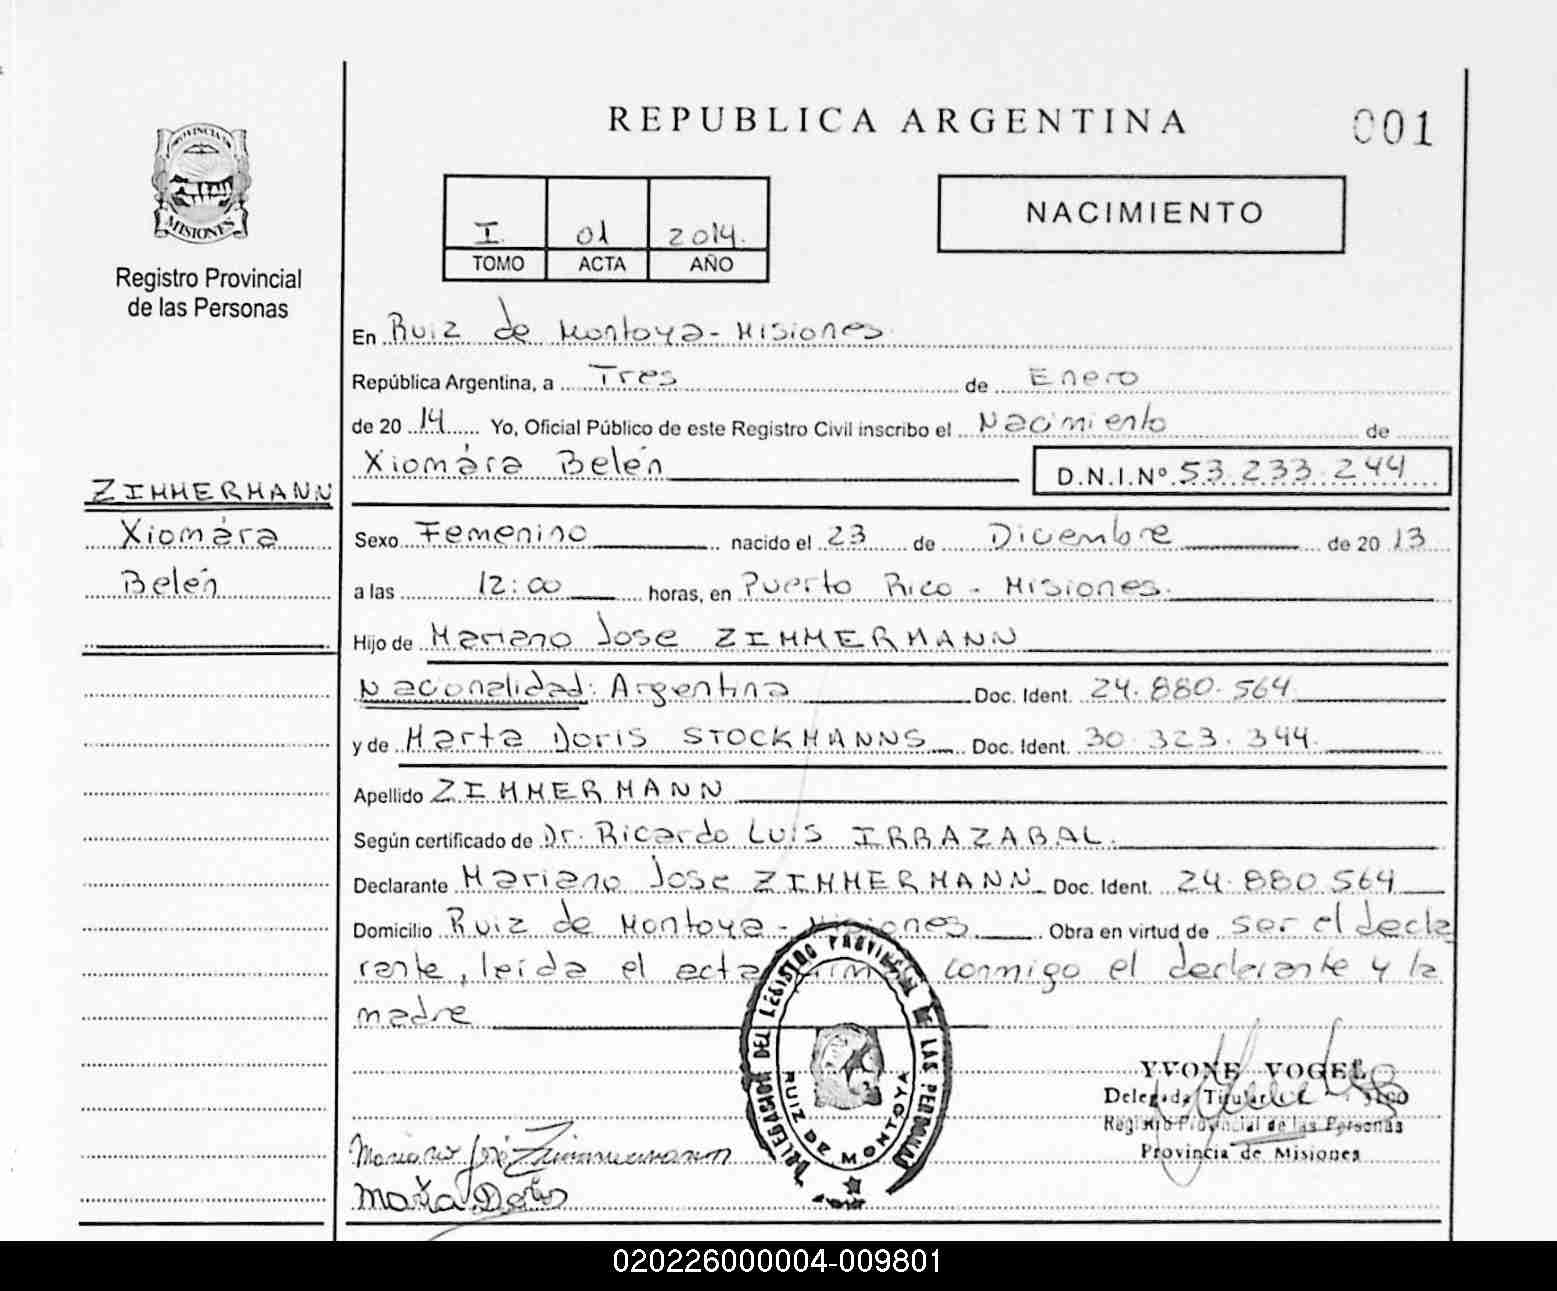 REPUBLICA ARGENTINA
001
PROVINCIA DE
MISIONES
Registro Provincial
de las Personas
I 01 2014.
TOMO ACTA AÑO
NACIMIENTO
En Ruiz de Montoya - Misiones
República Argentina, a Tres de Enero
de 2014 Yo, Oficial Público de este Registro Civil inscribo el Nacimiento de
Xiomára Belén D.N.I.Nº 53.233.244
ZIMMERMANN
Xiomára
Belén
Sexo Femenino nacido el 23 de Diciembre de 2013
a las 12:00 horas, en Puerto Rico - Misiones.
Hijo de Mariano Jose ZIMMERMANN
Nacionalidad: Argentina Doc. Ident. 24.880.564
y de Marta Doris STOCKMANNS Doc. Ident. 30.323.344.
Apellido ZIMMERMANN
Según certificado de Dr. Ricardo Luis IRRAZABAL.
Declarante Mariano Jose ZIMMERMANN Doc. Ident. 24.880.564
Domicilio Ruiz de Montoya - Misiones Obra en virtud de ser el decla
rante, leída el acta firma conmigo el declarante y la
madre
DELEGACION DEL REGISTRO PROVINCIAL DE LAS PERSONAS
RUIZ DE MONTOYA
YVONE VOGEL
Delegada Titular
Registro Provincial de las Personas
Provincia de Misiones
Mariano José Zimmermann
Marta Doris
020226000004-009801